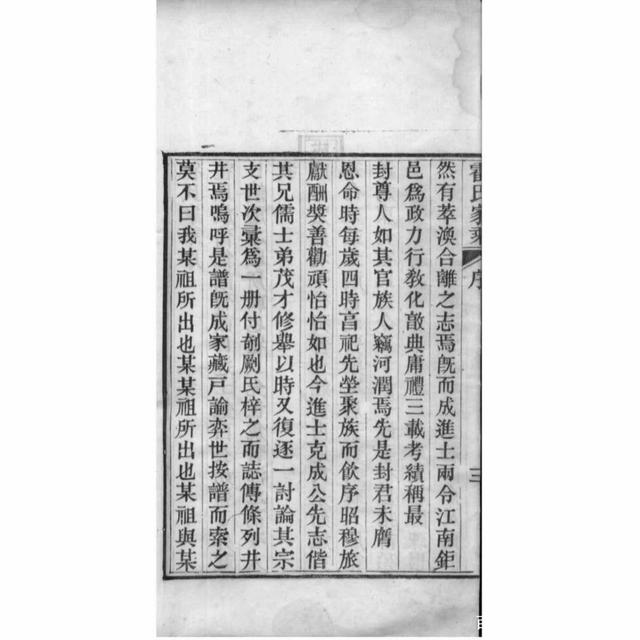 霍氏家乘
序
三
然有萃渙合離之志焉旣而成進士兩令江南鉅
邑爲政力行敎化敳典庸禮三載考績稱最
封尊人如其官族人竊河潤焉先是封君未膺
恩命時每歲四時亯祀先塋聚族而飮序昭穆旅
獻酬獎善勸頑怡怡如也今進士克成公先志偕
其兄儒士弟茂才修舉以時又復逐一討論其宗
支世次彙爲一册付剞劂氏梓之而誌傳條列井
井焉嗚呼是譜旣成家藏戸諭弈世按譜而索之
莫不曰我某祖所出也某某祖所出也某祖與某